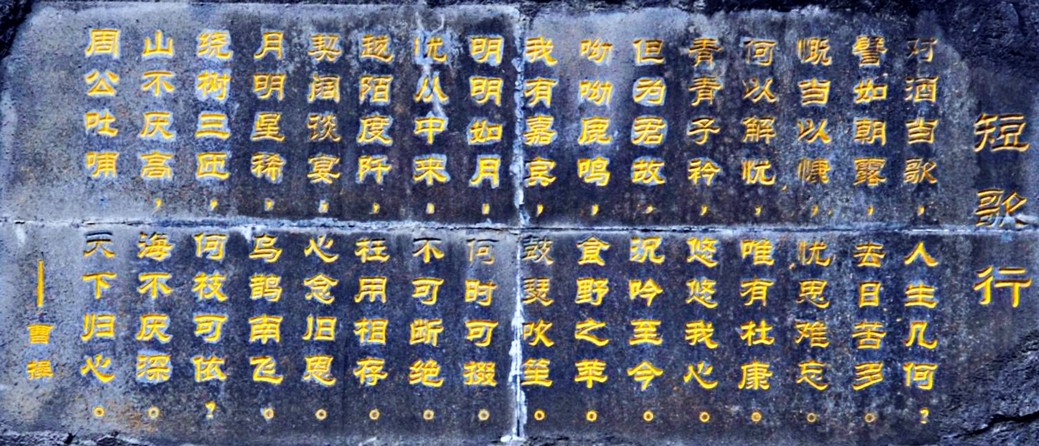 短歌行
对酒当歌，人生几何？
譬如朝露，去日苦多。
慨当以慷，忧思难忘。
何以解忧，唯有杜康。
青青子衿，悠悠我心。
但为君故，沉吟至今。
呦呦鹿鸣，食野之苹。
我有嘉宾，鼓瑟吹笙。
明明如月，何时可掇。
忧从中来，不可断绝。
越陌度阡，枉用相存。
契阔谈宴，心念旧恩。
月明星稀，乌鹊南飞。
绕树三匝，何枝可依？
山不厌高，海不厌深。
周公吐哺 天下归心。
—曹操